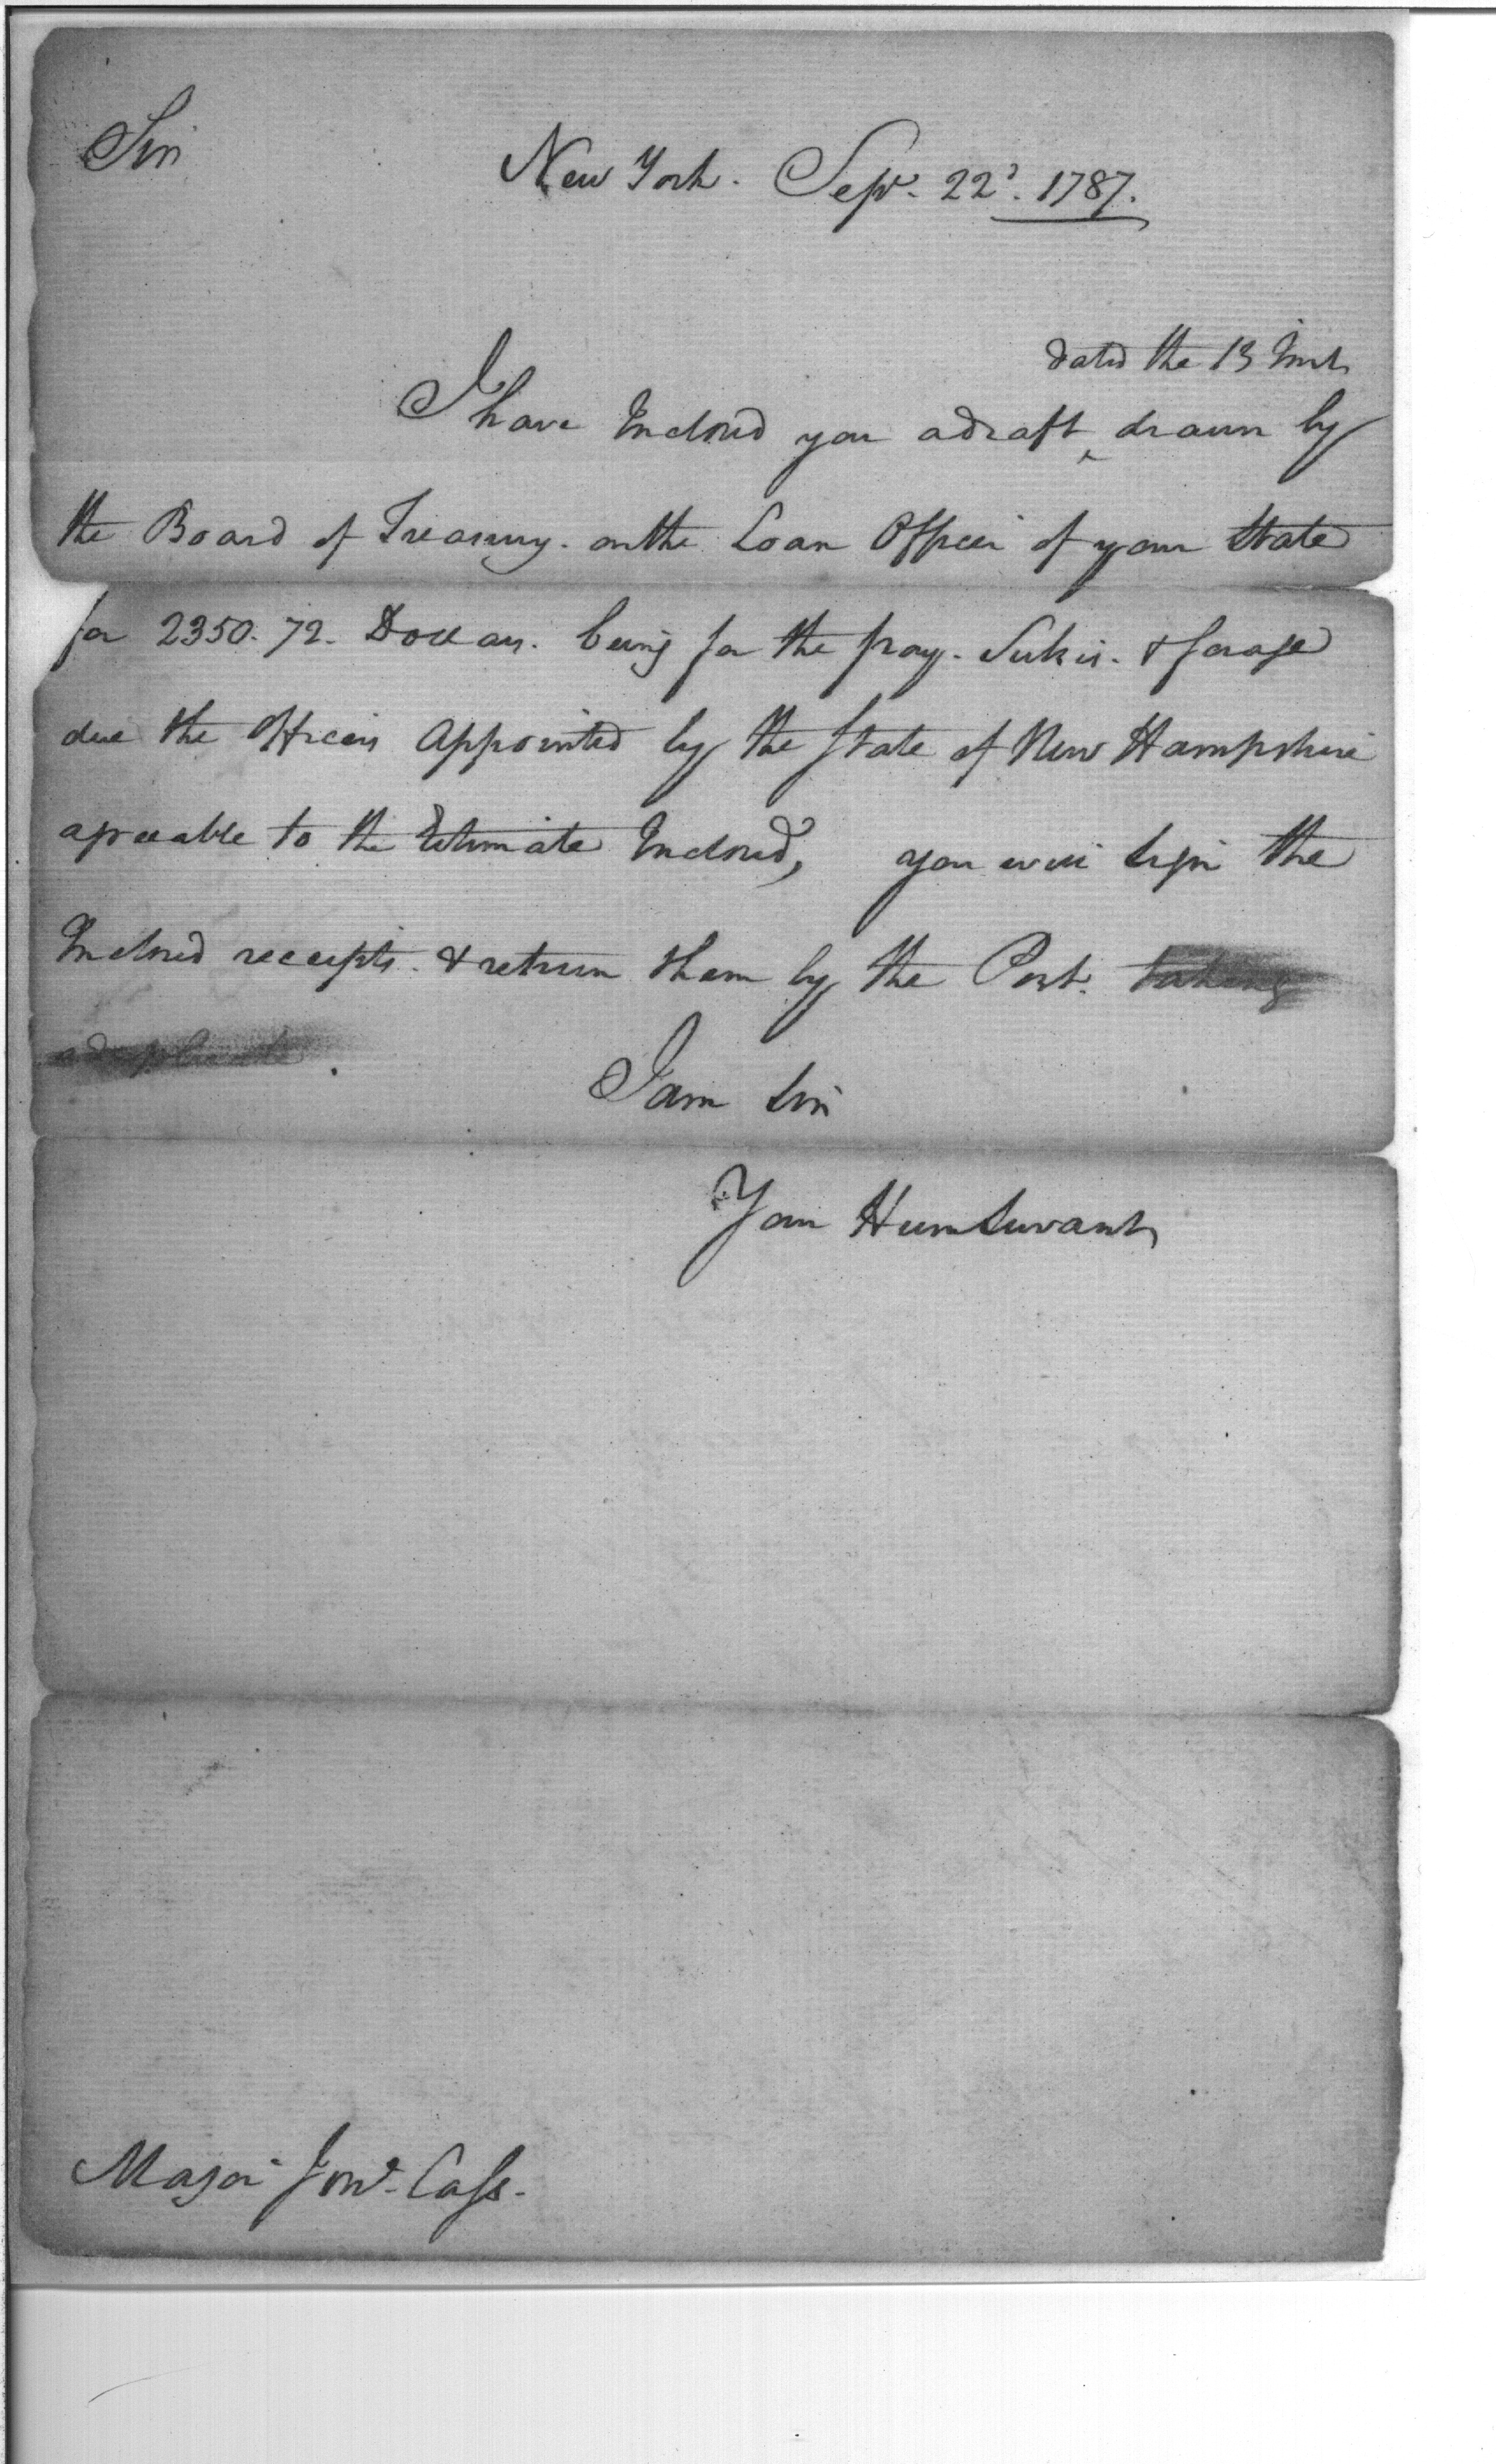 Sir
New York. Sepr. 22d. 1787.
dated the 13 Inst
I have Inclosed you a draft ^ drawn by
the Board of Treasury. on the Loan Officer of your State
for 2350. 72. Dollars. being for the pay. Subsis. & forage
due the Officers Appointed by the State of New Hampshire
agreeable to the Estimate Inclosed, you will sign the
Inclosed receipts. & return them by the Post. taking
a duplicate.
I am Sir
Your Hum Servant
Major Jonn. Cass.